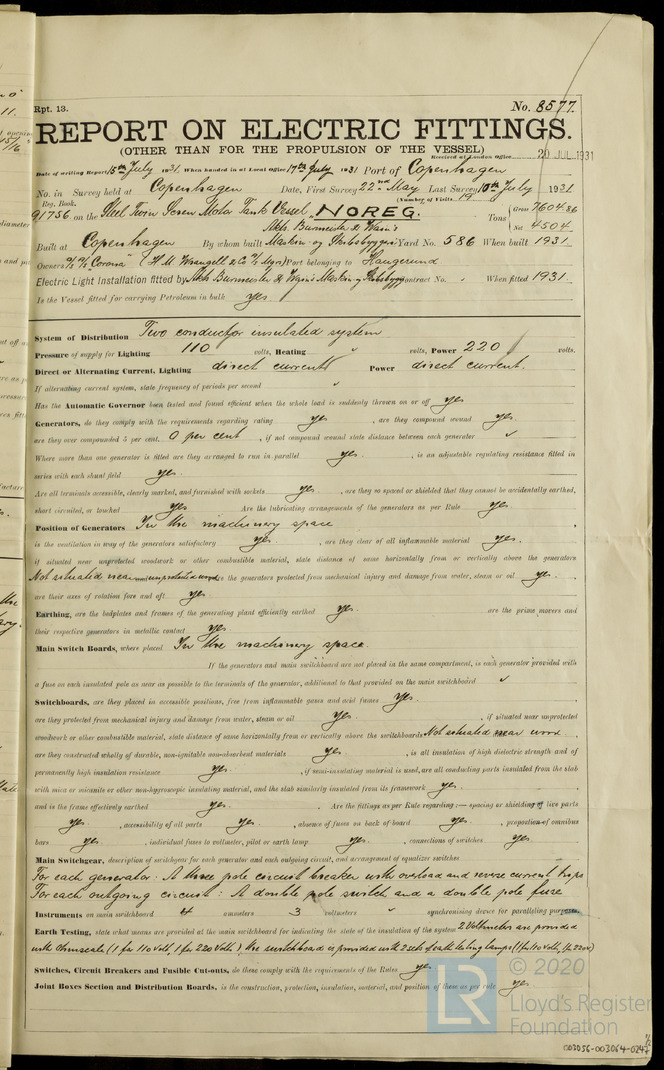 Rpt. 13.
No. 8577.
REPORT ON ELECTRIC FITTINGS.
(OTHER THAN FOR THE PROPULSION OF THE VESSEL)
Received at London Office 20 JUL 1931
Date of writing Report 15th July 1931. When handed in at Local Office 17th July 1931 Port of Copenhagen
No. in Survey held at Copenhagen Date, First Survey 22nd May Last Survey 10th July 1931
Reg. Book. (Number of Visits 19
91756 on the Steel Twin Screw Motor Tank Vessel "NOREG. Tons { Gross 7604.86
Net 4504
Akts. Burmeister & Wain's
Built at Copenhagen By whom built Maskin- og Skibsbyggeri Yard No. 586 When built 1931.
Owners A/S D/S "Corona" (H. M. Wrangell & Co A/S Mgrs) Port belonging to Haugesund
Electric Light Installation fitted by Akts Burmeister & Wain's Maskin- og Skibsbyggeri Contract No. When fitted 1931.
Is the Vessel fitted for carrying Petroleum in bulk yes
System of Distribution Two conductor insulated system
Pressure of supply for Lighting 110 volts, Heating volts, Power 220 volts.
Direct or Alternating Current, Lighting direct current Power direct current.
If alternating current system, state frequency of periods per second
Has the Automatic Governor been tested and found efficient when the whole load is suddenly thrown on or off yes
Generators, do they comply with the requirements regarding rating yes, are they compound wound yes.
are they over compounded 5 per cent. 0 per cent, if not compound wound state distance between each generator
Where more than one generator is fitted are they arranged to run in parallel yes, is an adjustable regulating resistance fitted in
series with each shunt field yes.
Are all terminals accessible, clearly marked, and furnished with sockets yes, are they so spaced or shielded that they cannot be accidentally earthed,
short circuited, or touched yes Are the lubricating arrangements of the generators as per Rule yes
Position of Generators In the machinery space
is the ventilation in way of the generators satisfactory yes, are they clear of all inflammable material yes.
if situated near unprotected woodwork or other combustible material, state distance of same horizontally from or vertically above the generators
Not situated near unprotected wood are the generators protected from mechanical injury and damage from water, steam or oil yes.
are their axes of rotation fore and aft yes
Earthing, are the bedplates and frames of the generating plant efficiently earthed yes are the prime movers and
their respective generators in metallic contact yes
Main Switch Boards, where placed In the machinery space.
If the generators and main switchboard are not placed in the same compartment, is each generator provided with
a fuse on each insulated pole as near as possible to the terminals of the generator, additional to that provided on the main switchboard
Switchboards, are they placed in accessible positions, free from inflammable gases and acid fumes yes.
are they protected from mechanical injury and damage from water, steam or oil yes, if situated near unprotected
woodwork or other combustible material, state distance of same horizontally from or vertically above the switchboards Not situated near wood.
are they constructed wholly of durable, non-ignitable non-absorbent materials yes, is all insulation of high dielectric strength and of
permanently high insulation resistance yes, if semi-insulating material is used, are all conducting parts insulated from the slab
with mica or micanite or other non-hygroscopic insulating material, and the slab similarly insulated from its framework yes
and is the frame effectively earthed yes. Are the fittings as per Rule regarding:— spacing or shielding of live parts
yes, accessibility of all parts yes, absence of fuses on back of board yes, proportion of omnibus
bars yes, individual fuses to voltmeter, pilot or earth lamp yes, connections of switches yes.
Main Switchgear, description of switchgear for each generator and each outgoing circuit, and arrangement of equalizer switches
For each generator: A three pole circuit breaker with overload and reverse current trips
For each outgoing circuit: A double pole switch and a double pole fuse
Instruments on main switchboard 4 ammeters 3 voltmeters synchronising device for paralleling purposes.
Earth Testing, state what means are provided at the main switchboard for indicating the state of the insulation of the system 2 Voltmeters are provided
with Ohmscale (1 for 110 volt, 1 for 220 Volt) the switchboard is provided with 2 sets of earth testing lamps (1 for 110 volt, 1 f. 220v)
Switches, Circuit Breakers and Fusible Cut-outs, do these comply with the requirements of the Rules yes.
Joint Boxes Section and Distribution Boards, is the construction, protection, insulation, material, and position of these as per rule yes
© 2020
LR
Lloyd's Register
Foundation
003056-003064-0247